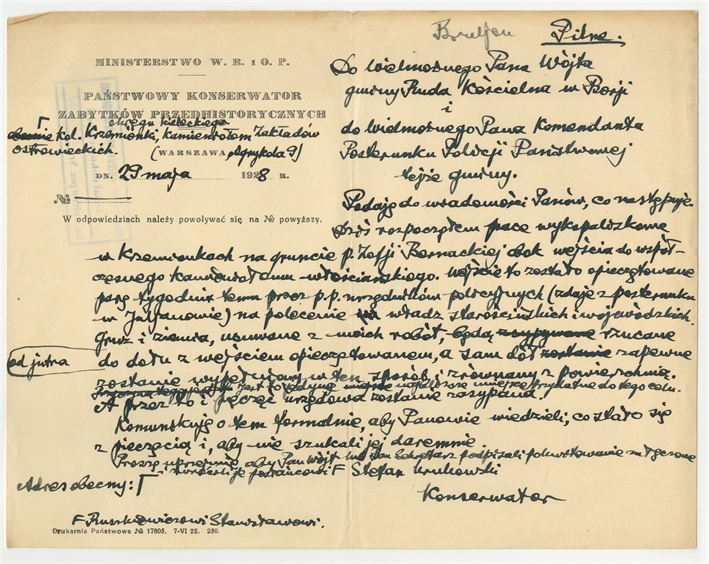 Bruljon
Pilne.
MINISTERSTWO W. R. i O. P.
PAŃSTWOWY KONSERWATOR
ZABYTKÓW PRZEDHISTORYCZNYCH
okręgu kieleckiego
obecnie kol. Krzemionki, kamieniołom Zakładów
ostrowieckich.
(WARSZAWA, Agrykola 9)
DN. 29 maja 1928 R.
№
W odpowiedziach należy powoływać się na № powyższy.
Do Wielmożnego Pana Wójta
gminy Ruda Kościelna w Borji
i
do Wielmożnego Pana Komendanta
Posterunku Policji Państwowej
tejże gminy.
Podaję do wiadomości Panów, co następuje.
Dziś rozpocząłem prace wykopaliskowe
w Krzemionkach na gruncie p. Zofji Bernackiej obok wejścia do współ-
czesnego kamieniołomu włościańskiego. Wejście to zostało opieczętowane
parę tygodni temu przez p.p. urzędników policyjnych (zdaje z posterunku
w Juljanowie) na polecenie władz starościńskich i wojewódzkich.
Gruz i ziemia, usuwane z moich robót, będą rzucane
od jutra
do dołu z wejściem opieczętowanem, a sam dół zapewne
zostanie wypełniony w ten sposób i zrównany z powierzchnią.
jest jedyne najbliższe miejsce przydatne do tego celu.
A przez to i pieczęć urzędowa zostanie zasypana.
Komunikuję o tem formalnie, aby Panowie wiedzieli, co stało się
z pieczęcią i, aby nie szukali jej daremnie.
Proszę uprzejmie, aby Pan Wójt lub Pan Sekretarz podpisali pokwitowanie załączone
i wręczyli je posłańcowi
Stefan Krukowski
Konserwator
Adres obecny:
Ruszkiewiczowi Stanisławowi.
Drukarnia Państwowa № 17805. 7-VI 22. 250.